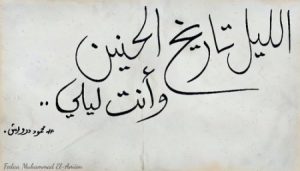 الليل تاريخ الحنين
وأنت ليلي ..
# محمود درويش .
Fedaa Muhammed El-Amian